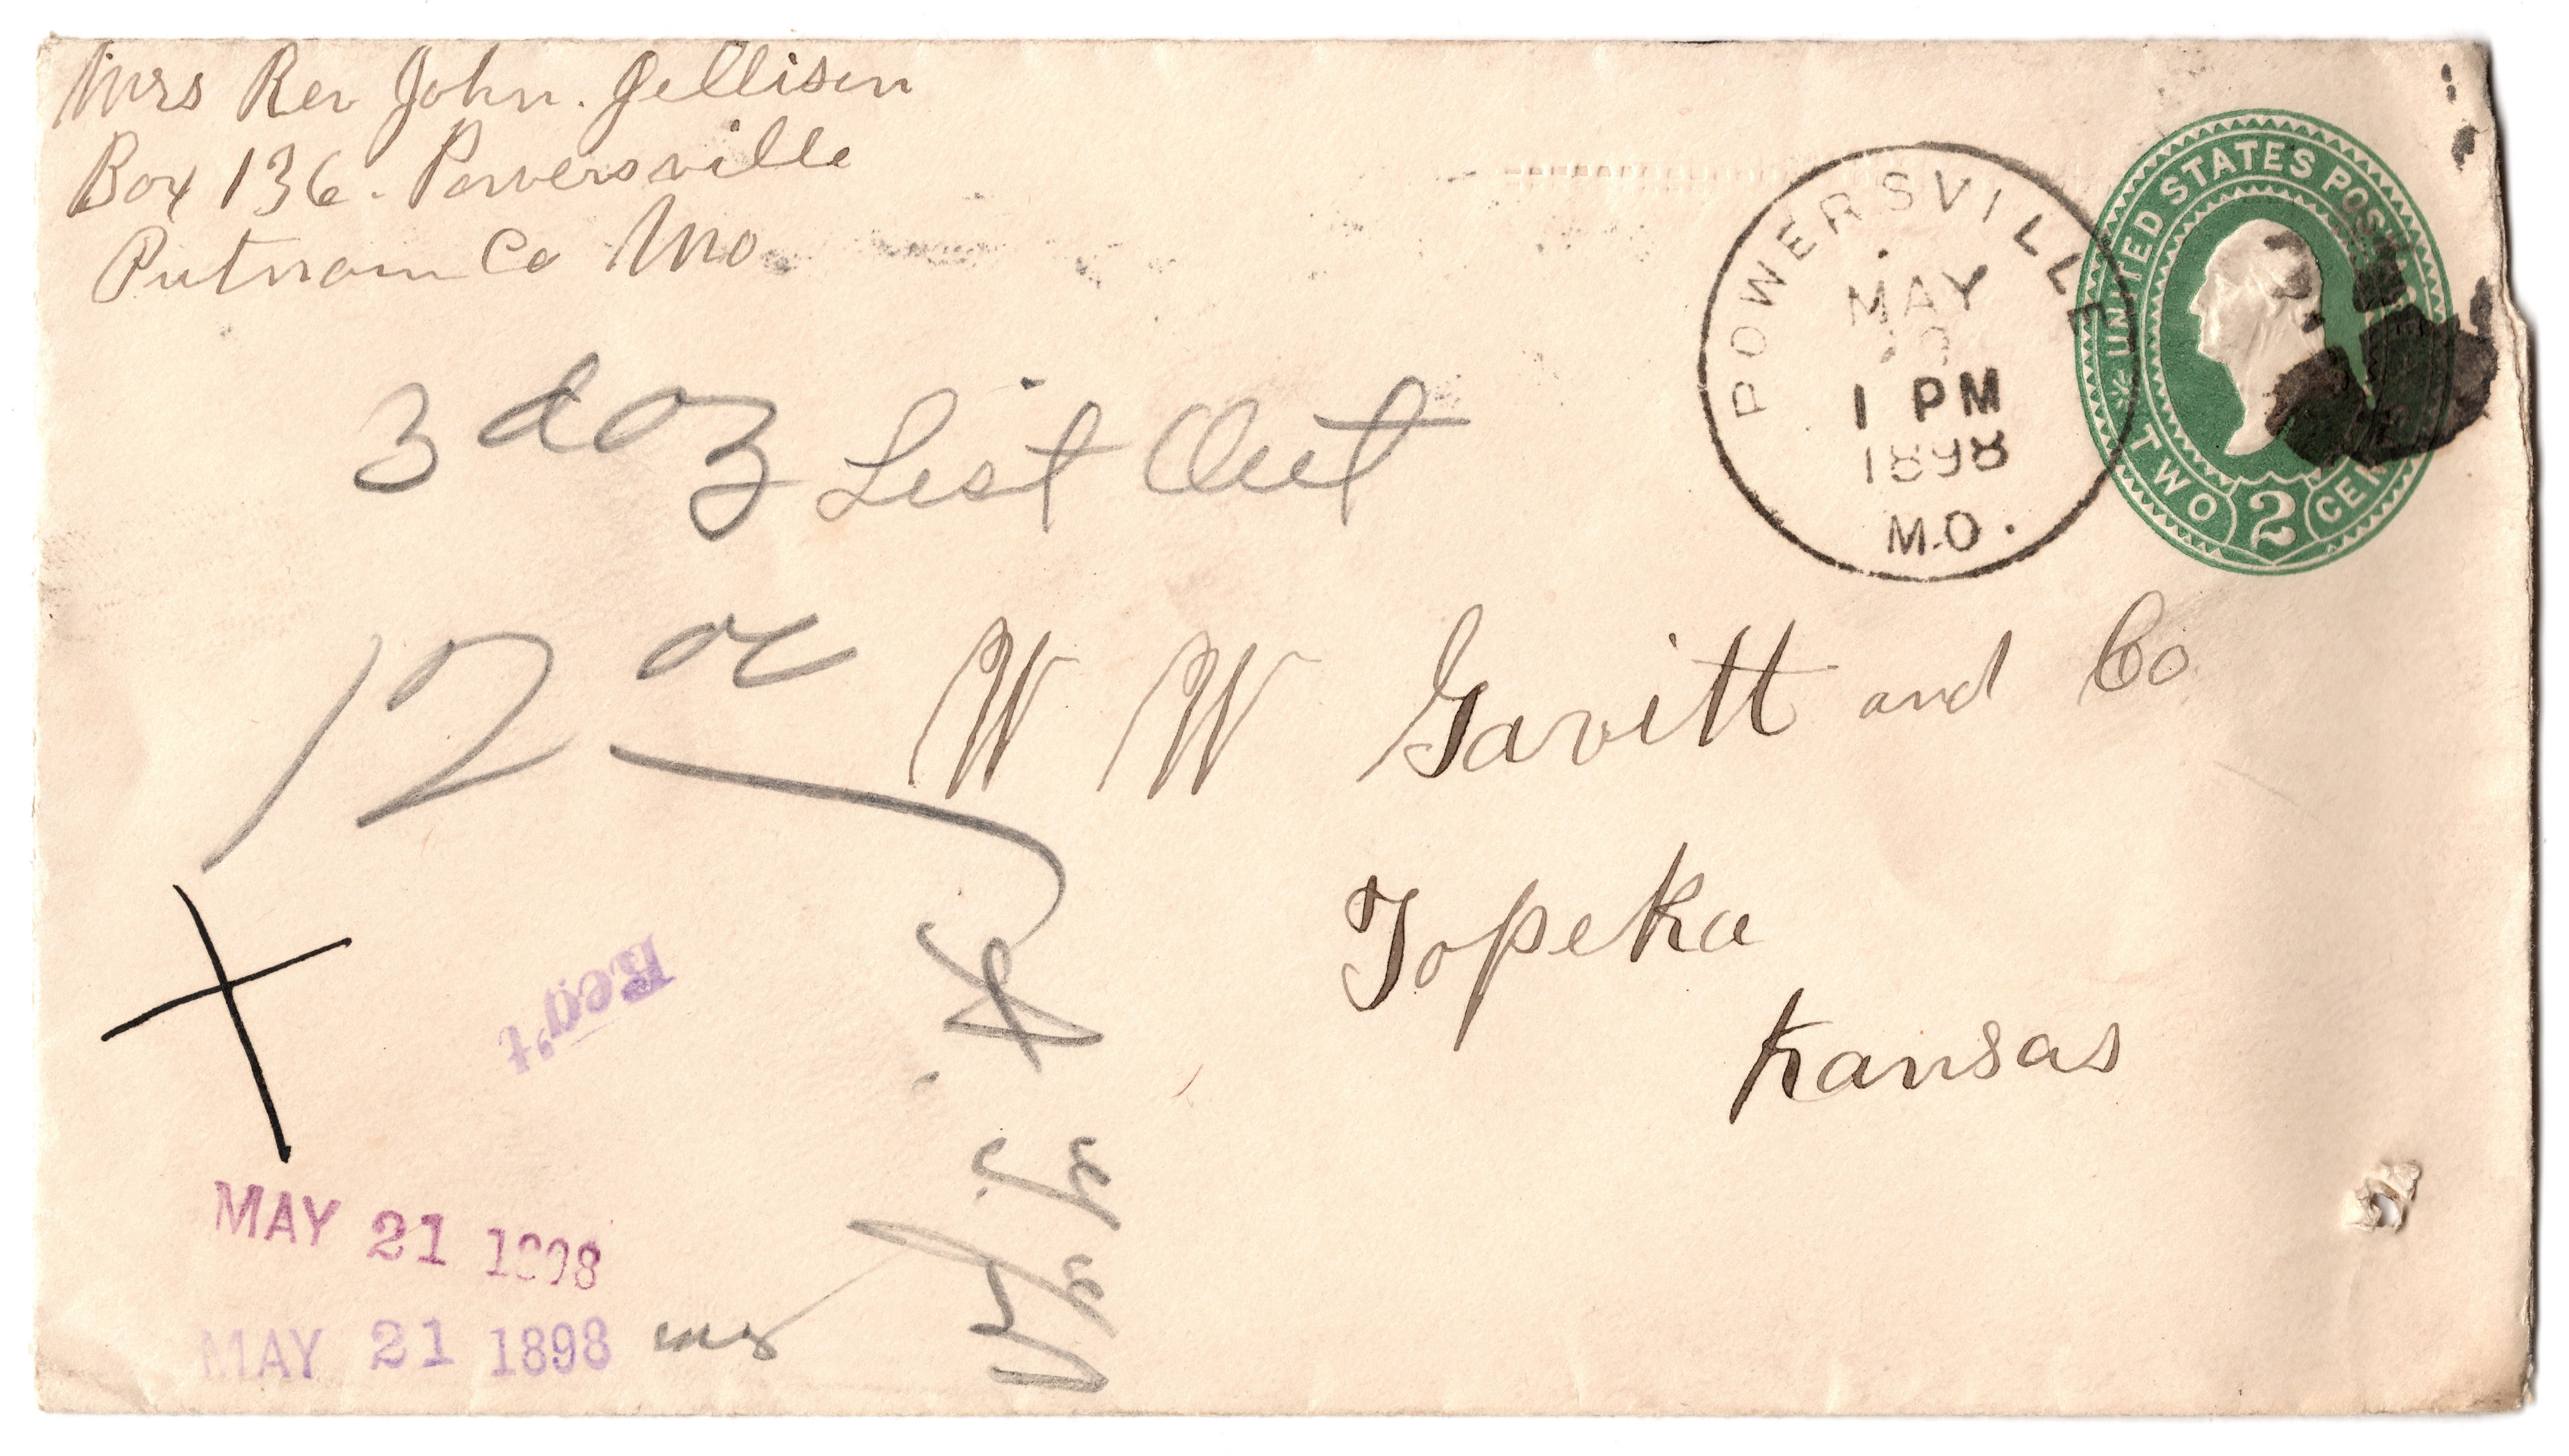 Mrs Rev John. Jellison
Box 136. Powersville
Putnam Co Mo
POWERSVILLE
MAY
1 PM
1898
MO.
UNITED STATES POSTAGE
TWO 2 CENTS
3 doz List Out
12 oc
W W Gavitt and Co
Topeka
Kansas
Reg't
MAY 21 1898
MAY 21 1898